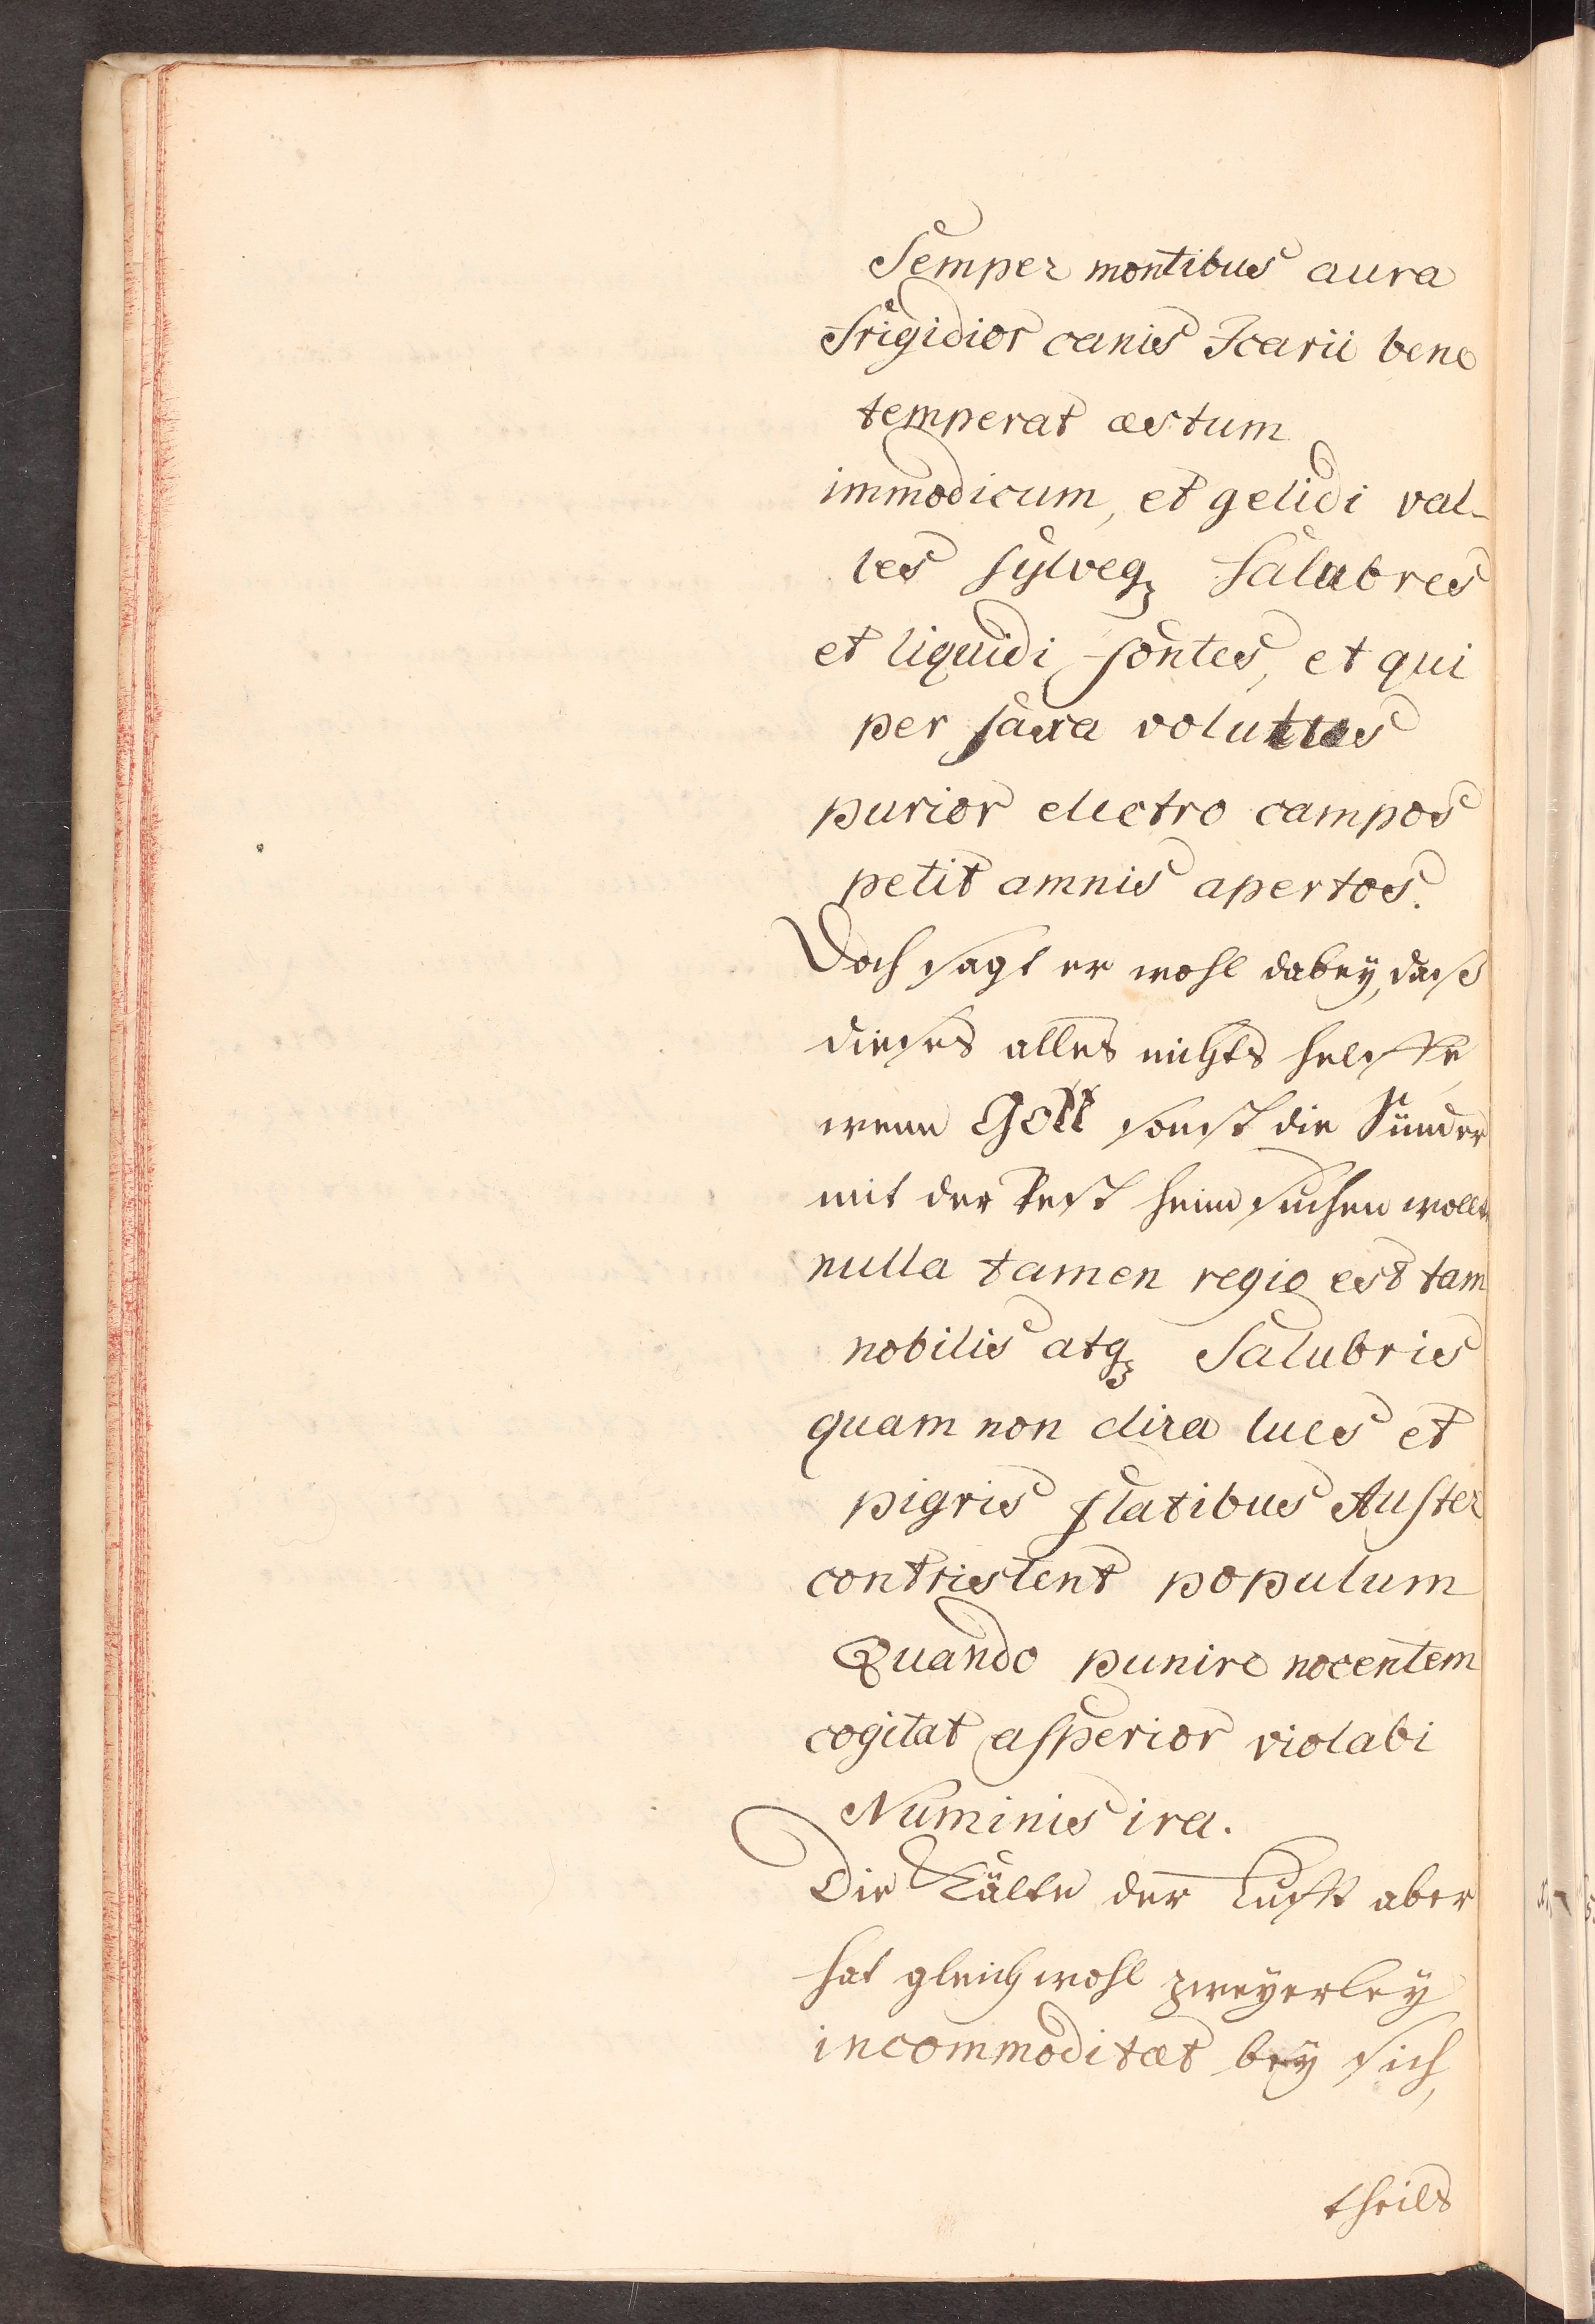 Semper montibus aura
frigidior canis Icarii bene
temperat æstum
immodicum, et gelidi val-
les sylveqȝ salubres
et liquidi fontes, et qui
per saxa volutus
purior electro campos
petit amnis apertos.
Doch sagt er wohl dabey, daß
dieses alles nichts helffe,
wenn Gott sonst die Sünder
mit der Pest heimsuchen wollte
nulla tamen regio est tam
nobilis atqȝ salubris
quam non dira lues et
pigris flatibus Auster
contristent populum
Quando punire nocentem
cogitat asperior violabi
Numinis ira.
Die Kälte der Lufft aber
hat gleichwohl zweyerley
incommoditæt bey sich,
theils